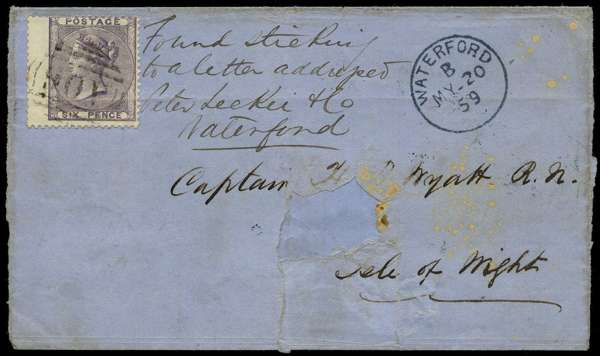 POSTAGE
SIX PENCE
Found sticking
to a letter addressed
Peter Leckie & Co
Waterford
WATERFORD
B
MY-20
59
Captain H Wyatt R. N.
Isle of Wight